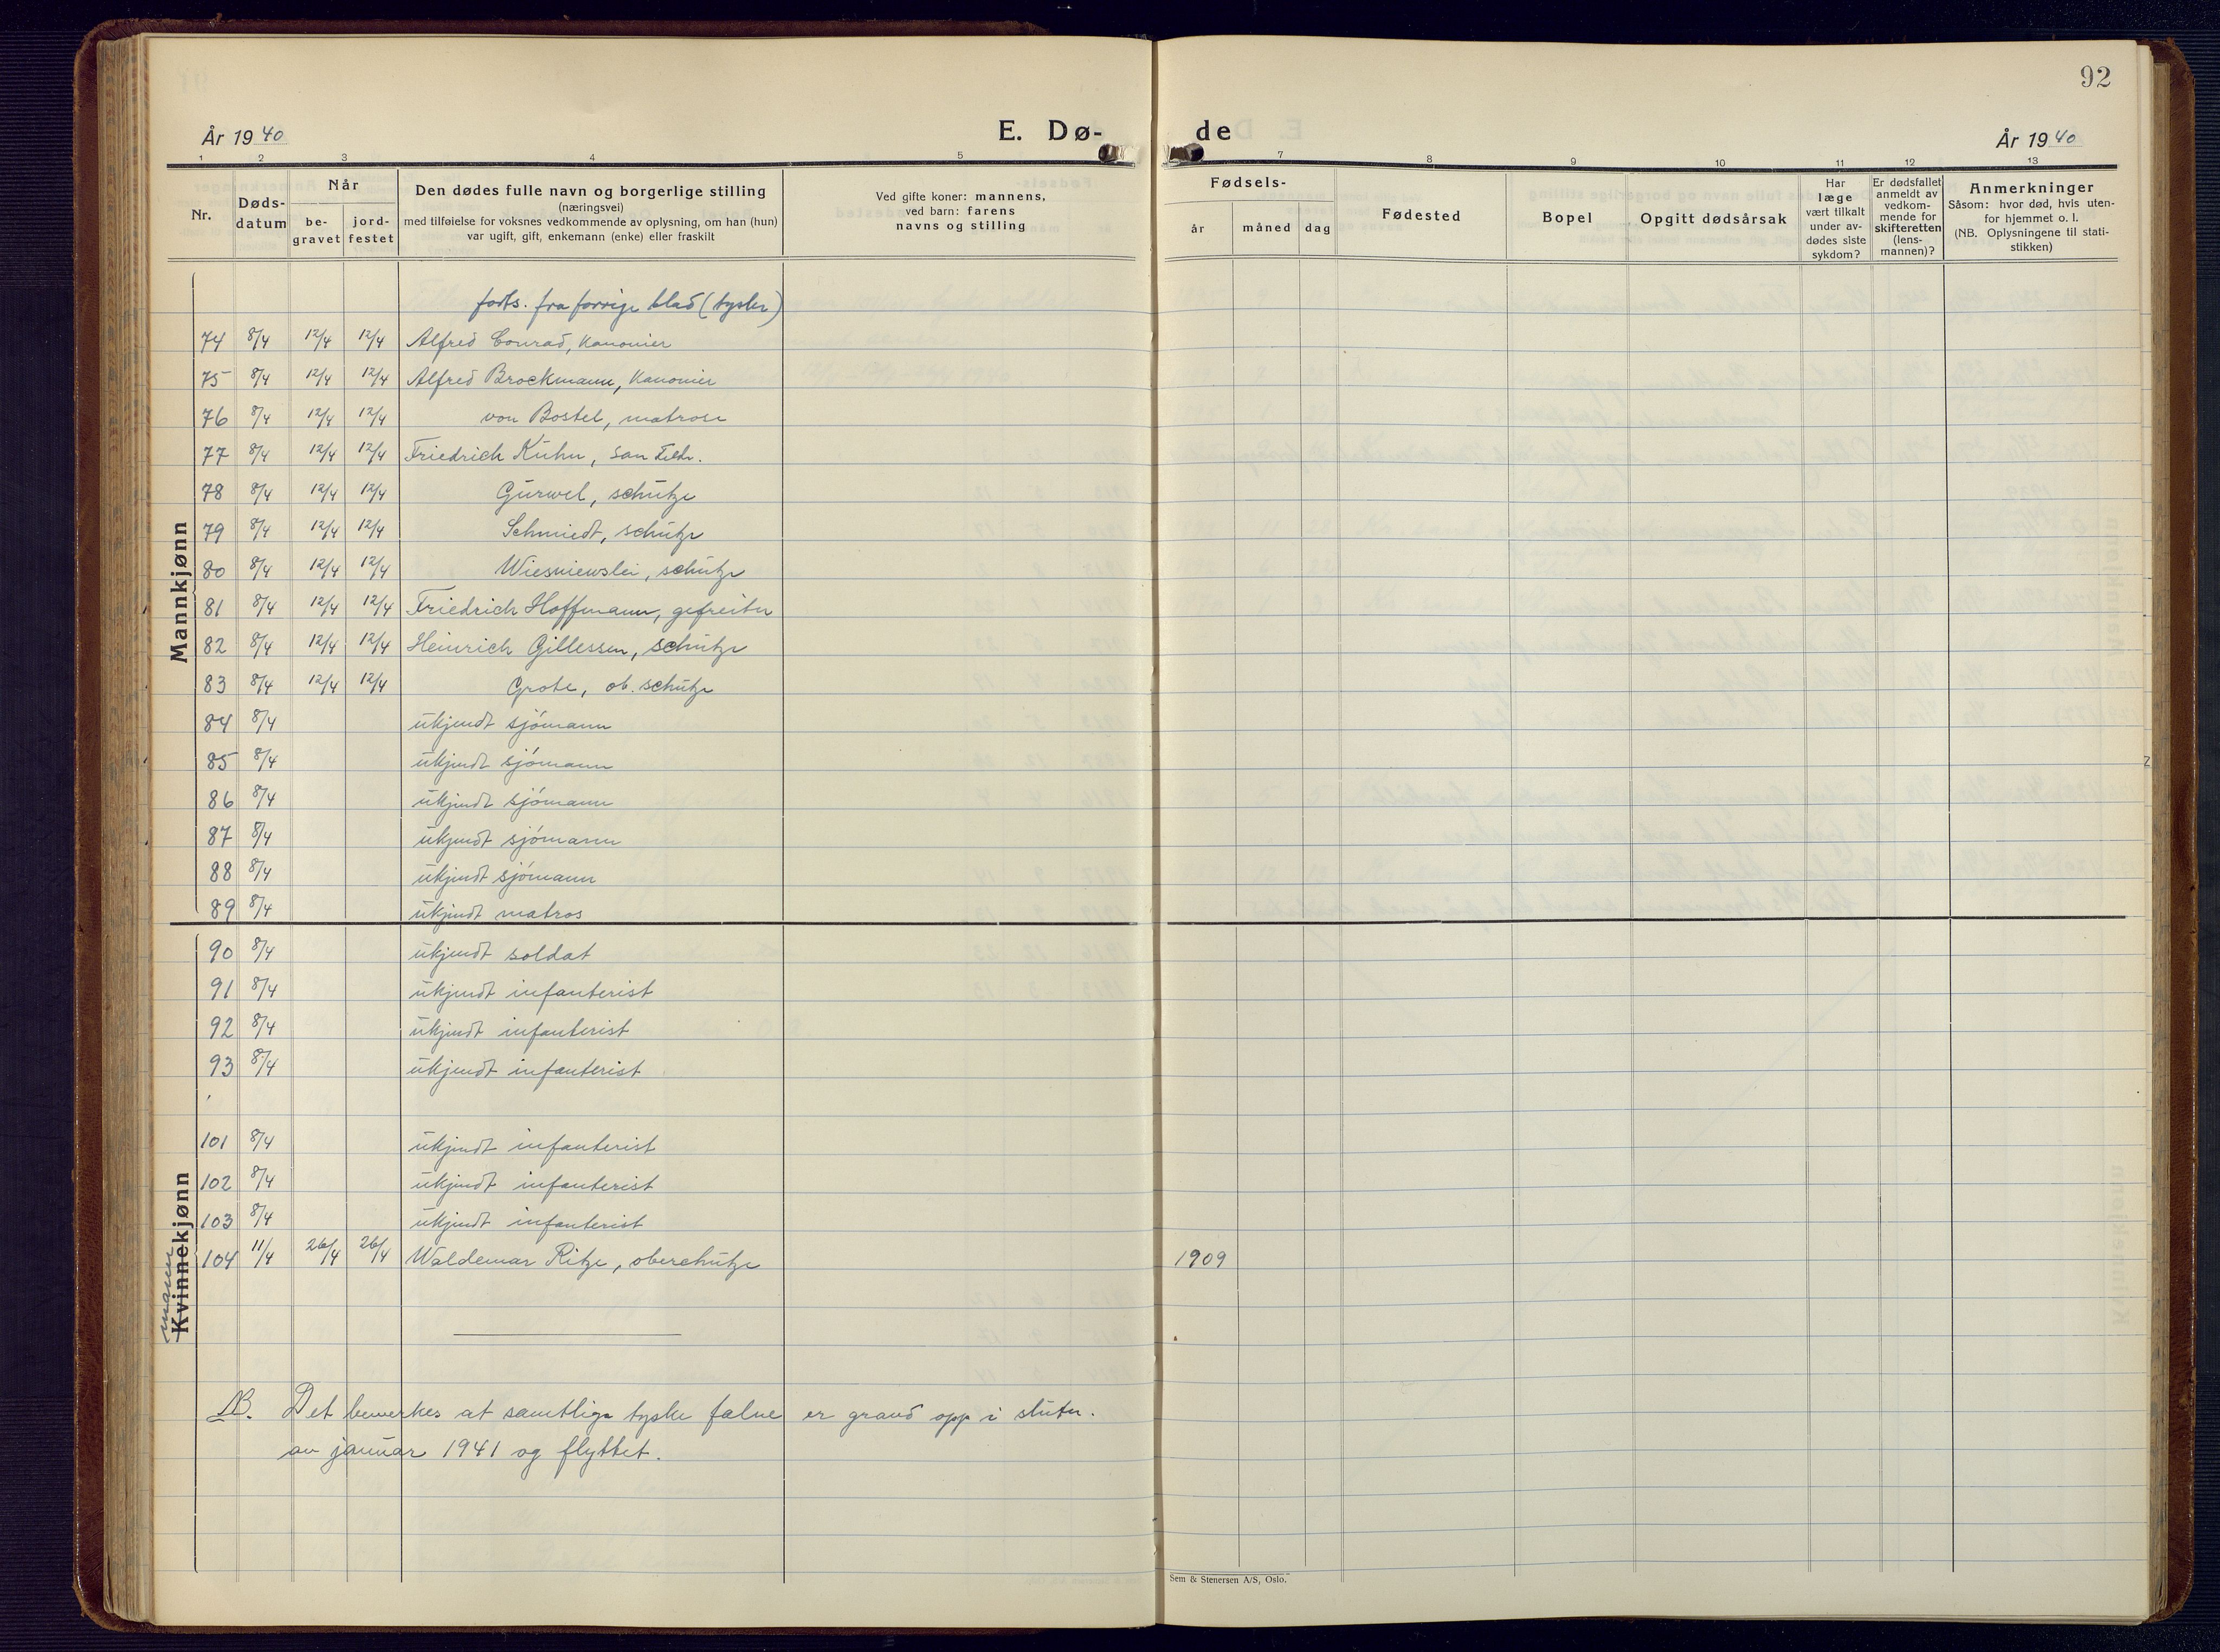 92
År 1940
E. Dø-
de
År 1940
1 2 3 4 5 7 8 9 10 11 12 13
Nr.
Døds-
datum
Når
be-
gravet
jord-
festet
Den dødes fulle navn og borgerlige stilling
(næringsvei)
med tilføielse for voksnes vedkommende av oplysning, om han (hun)
var ugift, gift, enkemann (enke) eller fraskilt
Ved gifte koner: mannens,
ved barn: farens
navns og stilling
Fødsels-
år
måned
dag
Fødested
Bopel
Opgitt dødsårsak
Har
læge
vært tilkalt
under av-
dødes siste
sykdom?
Er dødsfallet
anmeldt av
vedkom-
mende for
skifteretten
(lens-
mannen)?
Anmerkninger
Såsom: hvor død, hvis uten-
for hjemmet o. l.
(NB. Oplysningene til stati-
stikken)
Mannkjønn
forts. fra forrige blad (tyske)
74 8/4 12/4 12/4 Alfred Conrad, Kanonier
75 8/4 12/4 12/4 Alfred Brockmann, Kanonier
76 8/4 12/4 12/4 von Bostel, matrose
77 8/4 12/4 12/4 Friedrich Kühn, San
78 8/4 12/4 12/4 Gurwel, schütze
79 8/4 12/4 12/4 Schmiedt, schütze
80 8/4 12/4 12/4 Wiesniewski, schütze
81 8/4 12/4 12/4 Friedrich Hoffmann, gefreiter
82 8/4 12/4 12/4 Heinrich Gillessen, schütze
83 8/4 12/4 12/4 Grote, ob. schütze
84 8/4 ukjendt sjömann
85 8/4 ukjendt sjömann
86 8/4 ukjendt sjömann
87 8/4 ukjendt sjömann
88 8/4 ukjendt sjömann
89 8/4 ukjendt matros
90 8/4 ukjendt soldat
91 8/4 ukjendt infanterist
92 8/4 ukjendt infanterist
93 8/4 ukjendt infanterist
101 8/4 ukjendt infanterist
102 8/4 ukjendt infanterist
103 8/4 ukjendt infanterist
104 11/4 26/4 26/4 Waldemar Ritze, oberchütze 1909
Kvinnekjønn
mann
NB. Det bemerkes at samtlige tyske falne er gravd opp i slutn.
av januar 1941 og flyttet.
Sem & Stenersen A/S, Oslo.